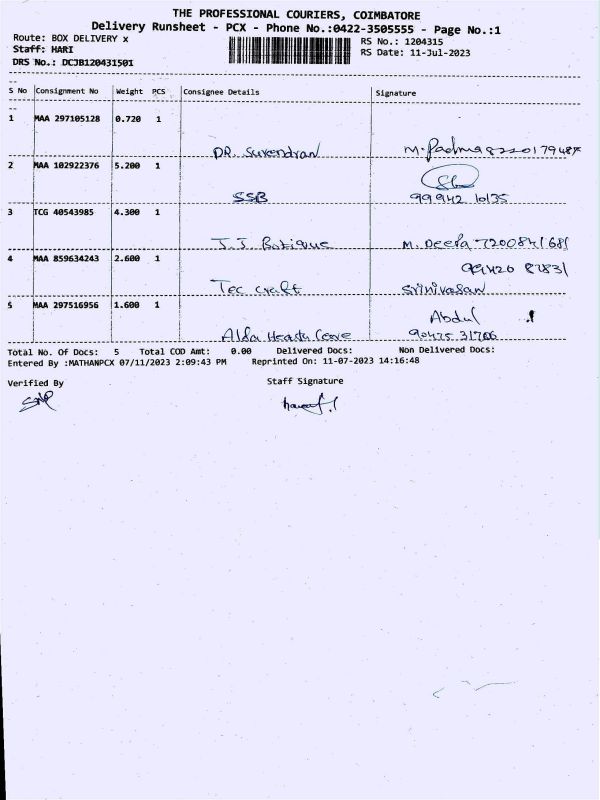 THE PROFESSIONAL COURIERS, COIMBATORE
Delivery Runsheet - PCX - Phone No.:0422-3505555 - Page No.:1
Route: BOX DELIVERY x
RS No.: 1204315
Staff: HARI
RS Date: 11-Jul-2023
DRS No.: DCJB120431501
S No Consignment No Weight PCS Consignee Details Signature
1 MAA 297105128 0.720 1
DR. Surendran M. Padma
2 MAA 102922376 5.200 1
SSB 99942 10135
3 TCG 40543985 4.300 1
J.J. Botique M. Deepa 7200841681
4 MAA 859634243 2.600 1
Tec craft Srinivasan
5 MAA 297516956 1.600 1 Abdul
Alfa 90475 31706
Total No. Of Docs: 5 Total COD Amt: 0.00 Delivered Docs: Non Delivered Docs:
Entered By :MATHANPCX 07/11/2023 2:09:43 PM Reprinted On: 11-07-2023 14:16:48
Verified By Staff Signature